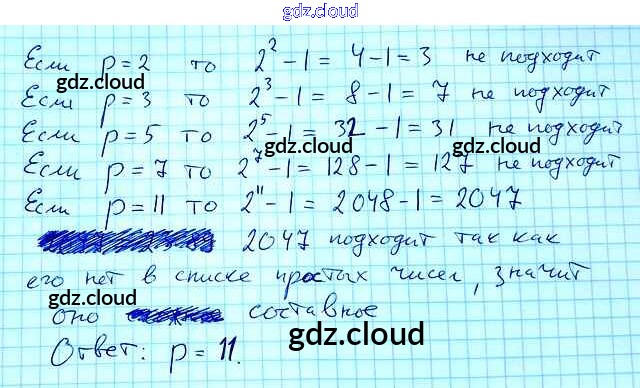 gdz.cloud
Если p = 2 то 2² - 1 = 4 - 1 = 3 не подходит
gdz.cloud
Если p = 3 то 2³ - 1 = 8 - 1 = 7 не подходит
Если p = 5 то 2⁵ - 1 = 32 - 1 = 31 не подходит
gdz.cloud
Если p = 7 то 2⁷ - 1 = 128 - 1 = 127 не подходит
gdz.cloud
Если p = 11 то 2¹¹ - 1 = 2048 - 1 = 2047
2047 подходит так как
его нет в списке простых чисел, значит
gdz.cloud
оно составное
gdz.cloud
Ответ: p = 11.